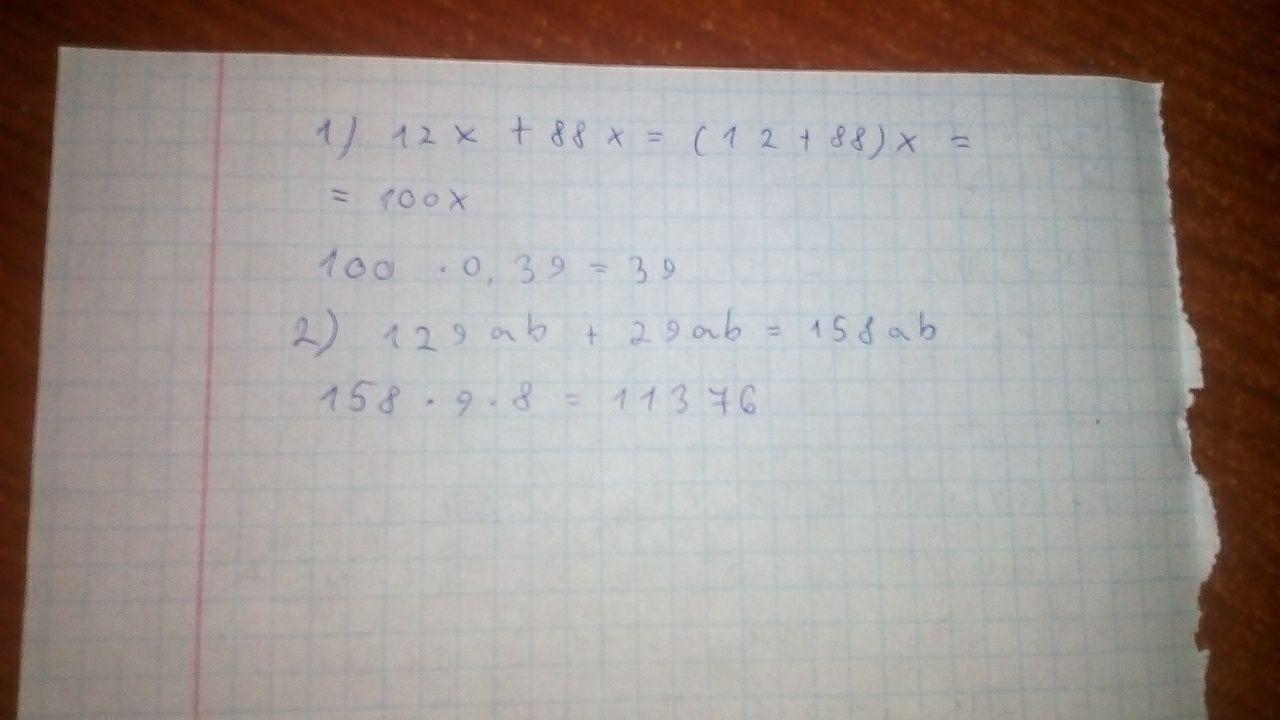 1) 12x + 88x = (12 + 88)x =
= 100x
100 · 0,39 = 39
2) 129ab + 29ab = 158ab
158 · 9 · 8 = 11376